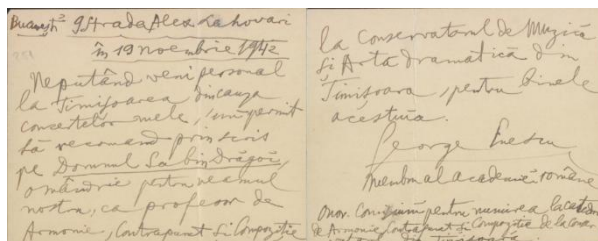 București 9 Strada Alex. Lahovari
în 19 noembrie 1942
Neputând veni personal
la Timișoarea din cauza
concertelor mele, îmi permit
să recomand prin scris
pe Domnul Sabin Drăgoi,
o mândrie pentru neamul
nostru, ca profesor de
Armonie, Contrapunt și Compoziție
la Conservatorul de Muzică
și Artă dramatică din
Timișoara, pentru binele
acestuia.
George Enescu
membru al academiei române
Onor. Comisiuni pentru numirea la catedra
de Armonie, Contrapunt și Compoziție de la